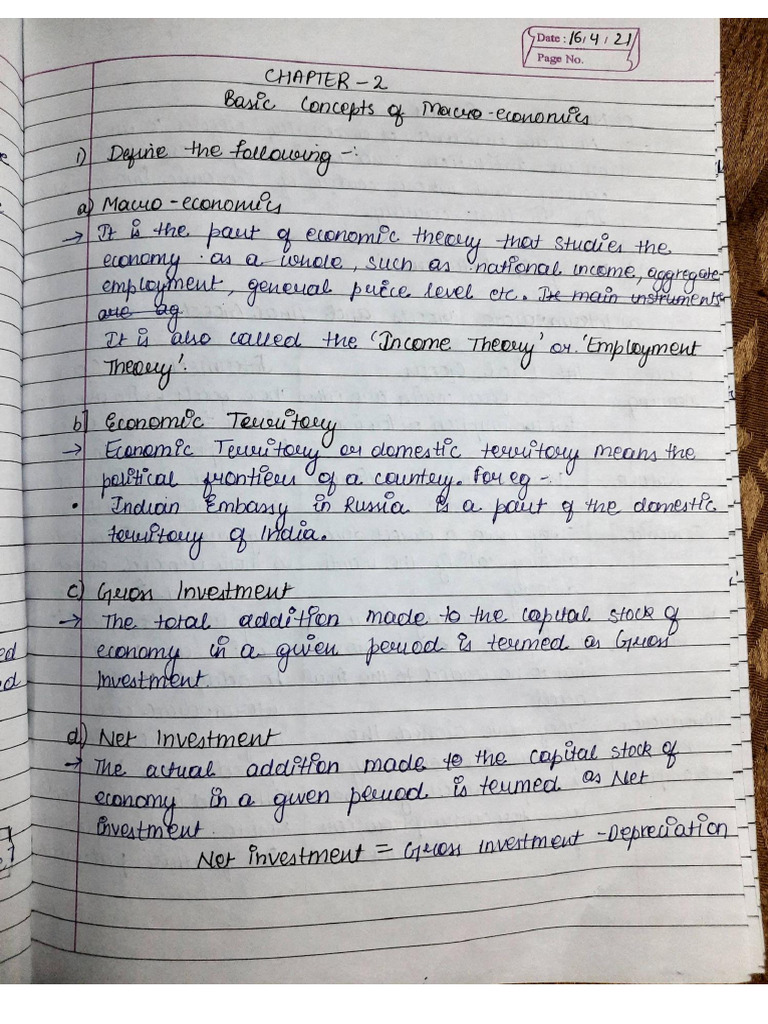 Date : 16.4.21
Page No.
CHAPTER - 2
Basic Concepts of Macro-economics
1) Define the following -:
a) Macro-economics
→ It is the part of economic theory that studies the
economy as a whole, such as national income, aggregate
employment, general price level etc. Its main instruments
are ag
It is also called the 'Income Theory' or 'Employment
Theory'.
b) Economic Territory
→ Economic Territory or domestic territory means the
political frontiers of a country. For eg -:
• Indian Embassy in Russia is a part of the domestic
territory of India.
c) Gross Investment
→ The total addition made to the capital stock of
economy in a given period is termed as Gross
Investment.
d) Net Investment
→ The actual addition made to the capital stock of
economy in a given period is termed as Net
investment.
Net investment = Gross investment - Depreciation